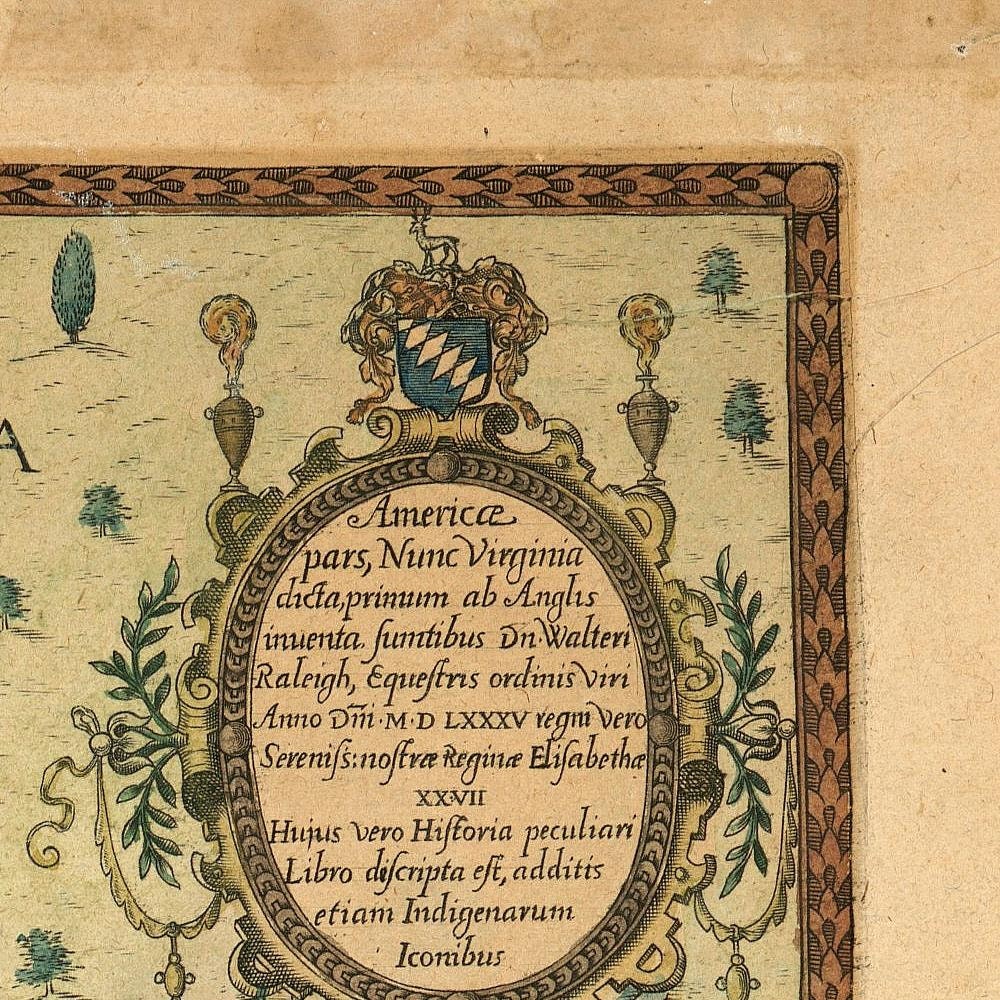 A
Americæ
pars, Nunc Virginia
dicta, primum ab Anglis
inuenta. ſumtibus Dn. Walteri
Raleigh, Equeſtris ordinis Viri
Anno Dn̅i. M. D LXXXV regni Vero
Sereniſs: noſtræ Reginæ Eliſabethæ
XXVII
Hujus vero Hiſtoria peculiari
Libro diſcripta eſt, additis
etiam Indigenarum
Iconibus